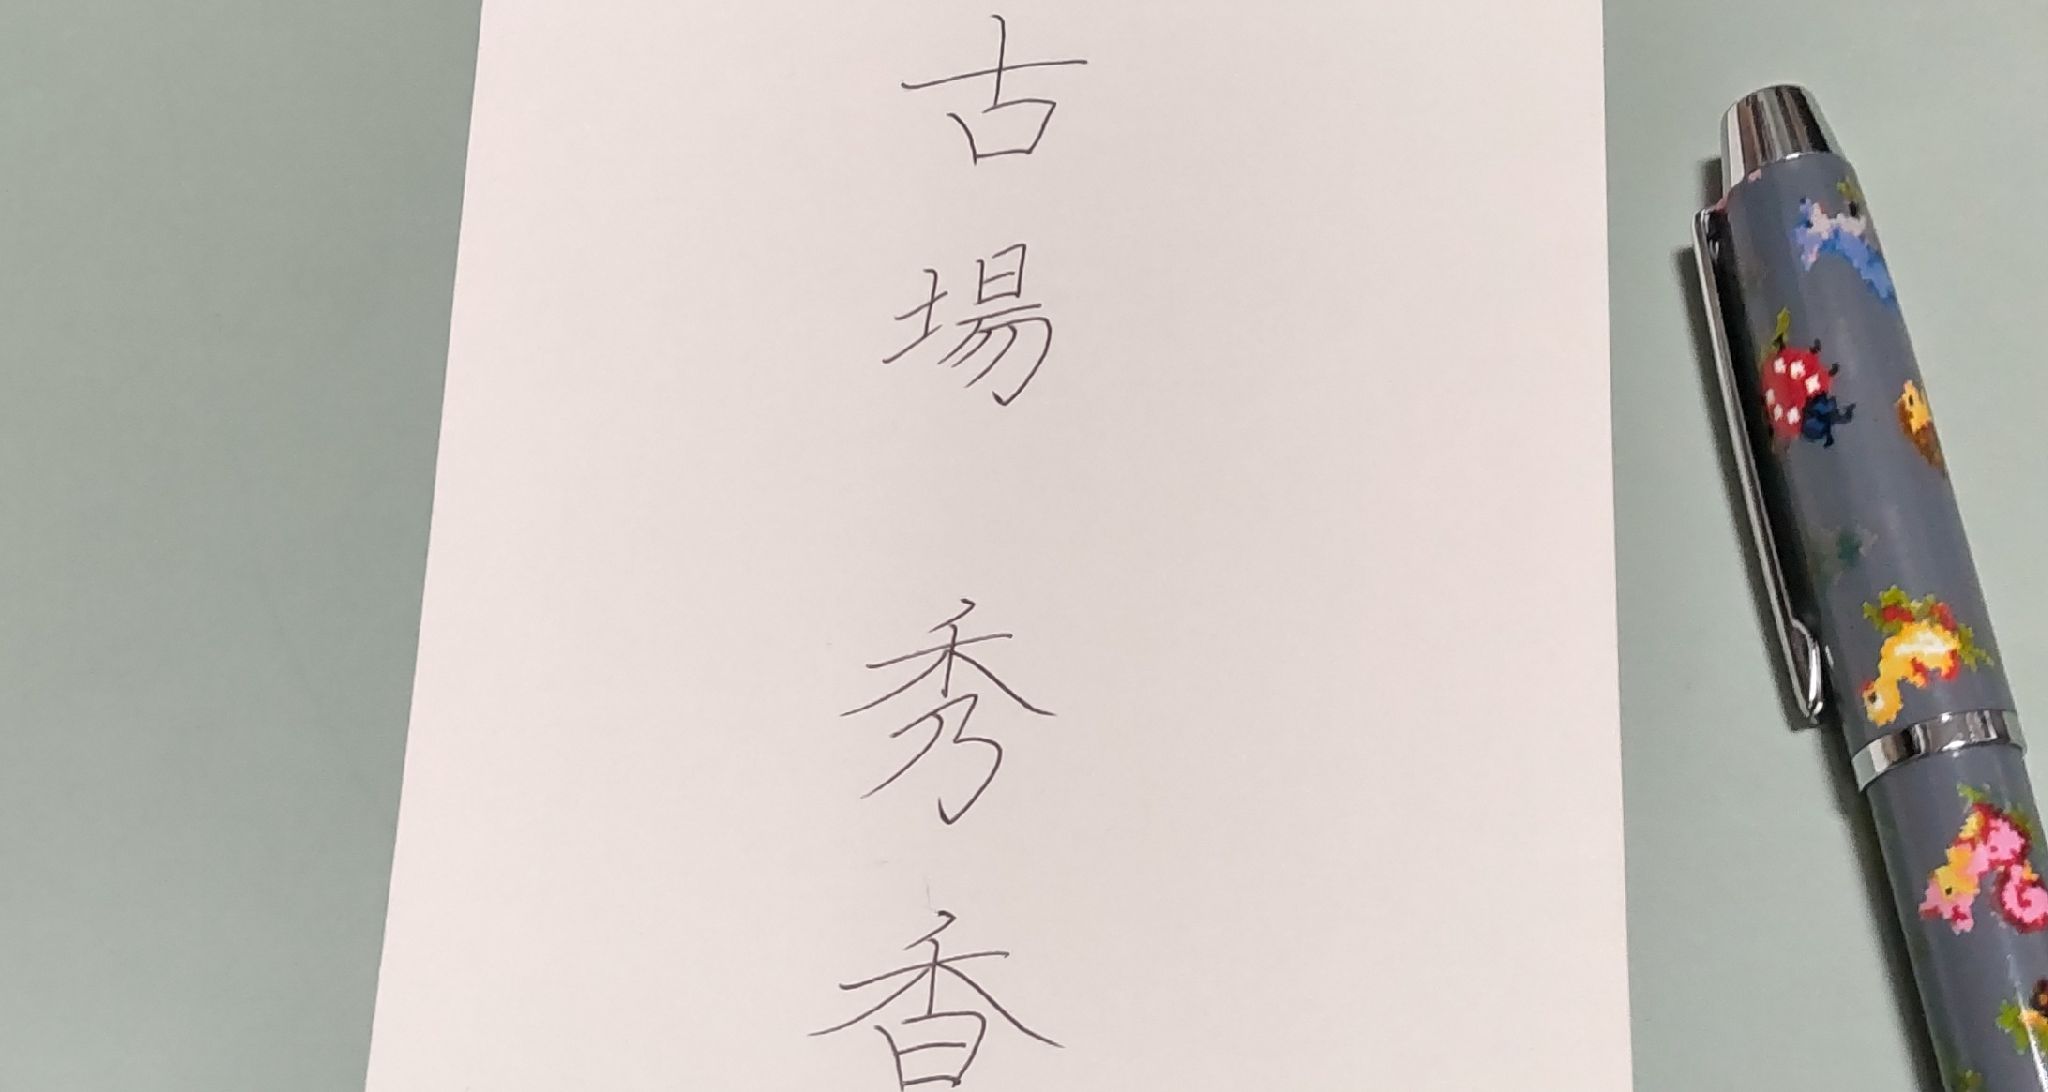 古場 秀香